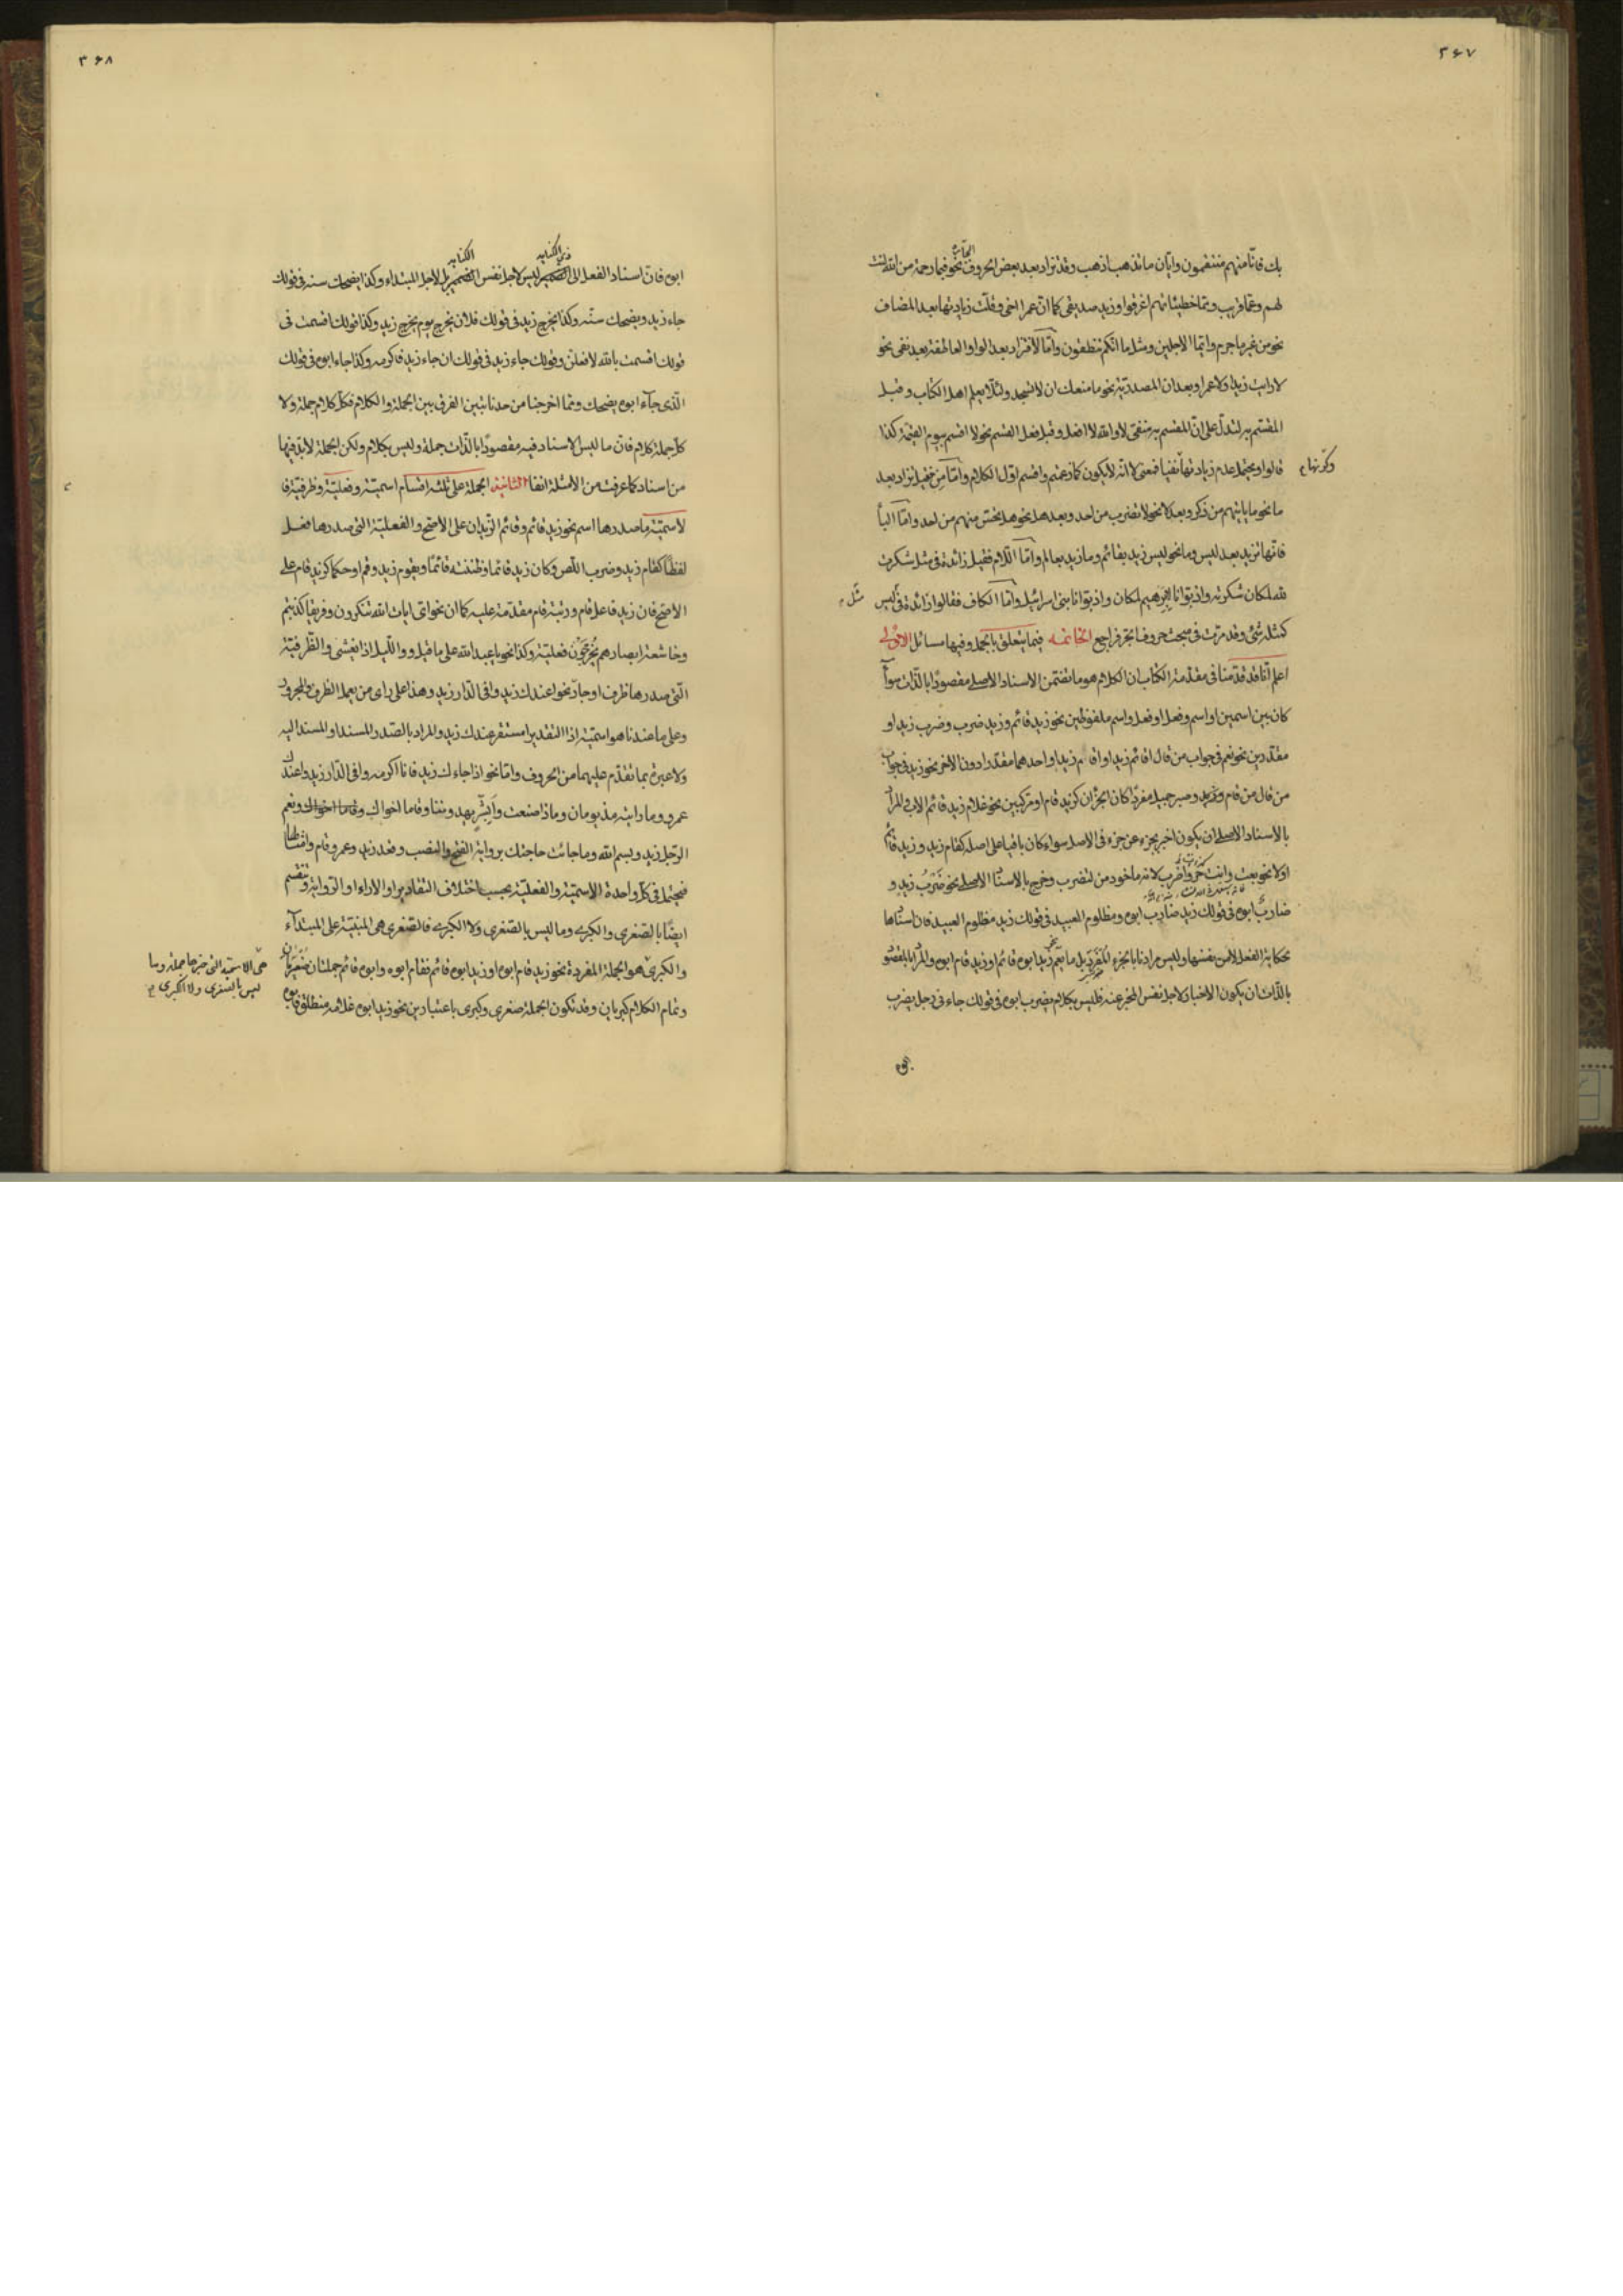 ۳۶۷
بك فانّا منهم منتقمون وايّان ما تذهب اذهب وقد تزاد بعد بعض الحروف الجارّة نحو فبما رحمة من الله لنت
لهم وعمّا قريب وممّا خطيئاتهم اغرقوا وزيد صديقى كما انّ عمرا اخى وقلّت زيادتها بعد المضاف
نحو من غير ما جرم وايّما الاجلين ومثل ما انّكم تنطقون وامّا لا فتزاد بعد الواو العاطفة بعد نفى نحو
لا رايت زيدا ولا عمرا وبعد ان المصدريّة نحو ما منعك ان لا تسجد ولئلّا يعلم اهل الكتاب وقبل
المقسم به لتدلّ على انّ المقسم به منفى لا والله لا افعل وقبل فعل القسم نحو لا اقسم بيوم القيمة كذا
قالوا ويحتمل عدم زيادتها نفيا فمعنى لا انّه لا يكون كما زعمتم واقسم اوّل الكلام وامّا من فقيل تزاد بعد
ما نحو ما ياتيهم من ذكر وبعد لا نحو لا تضرب من احد وبعد هل نحو هل تحسّ منهم من احد وامّا الباء
فانّها تزيد بعد ليس وما نحو ليس زيد بقائم وما زيد بعالم وامّا اللّام فقيل زائدة فى مثل شكرت
لله لمكان شكرته واذ بوّانا لابرهيم لمكان واذ بوّانا بنى اسرائيل وامّا الكاف فقالوا زائدة فى ليس مثل
كمثله شىء وقد مرّت فى مبحث حروف الجر فراجع الخاتمه فيما يتعلق بالجمل وفيها مسائل الاولى
اعلم انّا قد قدّمنا فى مقدّمة الكتاب ان الكلام هو ما تضمّن الاسناد الاصلى مقصودًا بالذّات سواء
كان بين اسمين او اسم وفعل او فعل واسم ملفوظين نحو زيد قائم وزيد ضرب وضرب زيد او
مقدّرين نحو نعم فى جواب من قال اقائم زيد او اقام زيد او احدهما مقدّرا دون الاخر نحو زيد فى جواب
من قال من قام وزيد وصبر جميل مفردًا كان الجزان كزيد قام او مركّبين نحو غلام زيد قائم الاب والمراد
بالاسناد الاصلى ان يكون اخبر بجزء عن جزء فى الاصل سواء كان باقيا على اصله كقام زيد وزيد قائم
اولا نحو بعت وانت حرّ واضرب لانه ماخوذ من لتضرب وخرج بالاسناد الاصلى نحو ضرب زيد و
ضارب ابوه فى قولك زيد ضارب ابوه ومظلوم العبيد فى قولك زيد مظلوم العبيد فان اسنادها
بحكاية الفعل لا من نفسها وليس مرادنا بالجزء المفرد بل ما يعم نحو زيد ابوه قائم او زيد قام ابوه والمراد بالمقصود
بالذّات ان يكون الاخبار لاجل نفس المخبر عنه فليس بكلام يضرب ابوه فى قولك جاءنى رجل يضرب
ابوه
وكّدتها م
مثل م
۳۶۸
ابوه فانّ اسناد الفعل الى الضمير ليس لاجل نفس الضمير بل لاجل المبتداء وكذا يضحك سنه فى قولك
جاء زيد ويضحك سنّه وكذا يخرج زيد فى قولك فلان يخرج يوم يخرج زيد وكذا قولك اقسمت فى
قولك اقسمت بالله لافعلن وقولك جاء زيد فى قولك ان جاء زيد فاكرمه وكذا جاء ابوه فى قولك
الّذى جاء ابوه يضحك وممّا اخرجنا من حدنا تبيّن الفرق بين الجملة والكلام فكلّ كلام جملة ولا
كلّ جملة كلام فانّ ما ليس الاسناد فيه مقصودًا بالذّات جملة وليس بكلام ولكن الجملة لا بدّ فيها
من اسناد كما عرفت من الامثلة انفا الثانية الجملة على ثلثة اقسام اسميّة وفعليّة وظرفيّة فا
لاسميّة ما صدرها اسم نحو زيد قائم وقائم الزّيدان على الاصّح والفعليّة التى صدرها فعل
لفظًا كقام زيد وضرب اللّص وكان زيد قائما وظننته قائمًا ويقوم زيد وقم او حكما كزيد قام على
الاصّح فان زيد فاعل قام ورتبة قام مقدّمة عليه كما ان نحو اىّ ايات الله تنكرون وفريقا كذبتم
وخاشعة ابصارهم يخرجون فعليّة وكذا نحو يا عبد الله على ما قيل و واللّيل اذا يغشى والظّرفيّة
الّتى صدرها ظرف او جارّ نحو اعندك زيد وافى الدّار زيد وهذا على راى من يعمل الظرف والمجرور
وعلى ما عندنا هو اسميّة اذ التّقدير امستقر عندك زيد والمراد بالصّدر المسند او المسند اليه
ولا عبرة بما تقدّم عليهما من الحروف وامّا نحو اذا جاءك زيد فانا اكرمه وافى الدّار زيد واعندك
عمرو وما رايته مذ يومان وماذا صنعت وابشر يهدوننا وقاما اخواك ونعم
الرّجل زيد وبسم الله وما جائت حاجتك برواية الفتح والنصب وقعد زيد وعمرو قام وامثالها
فيحتمل فى كلّ واحدة الاسميّة والفعليّة بحسب اختلاف التقادير او الاراء او الرّواية وتنقسم
ايضًا بالصّغرى والكبرى وما ليس بالصّغرى ولا الكبرى فالصّغرى هى المبنيّة على المبتداء
والكبرى هو الجملة المفردة نحو زيد قام ابوه او زيد ابوه قائم فقام ابوه وابوه قائم جملتان صغريان
وتمام الكلام كبريان وقد تكون الجملة صغرى وكبرى باعتبارين نحو زيد ابوه غلامه منطلق فابوه
هى الاسميّة التى خبرها جملة وما
ليس بالصغرى ولا الكبرى م